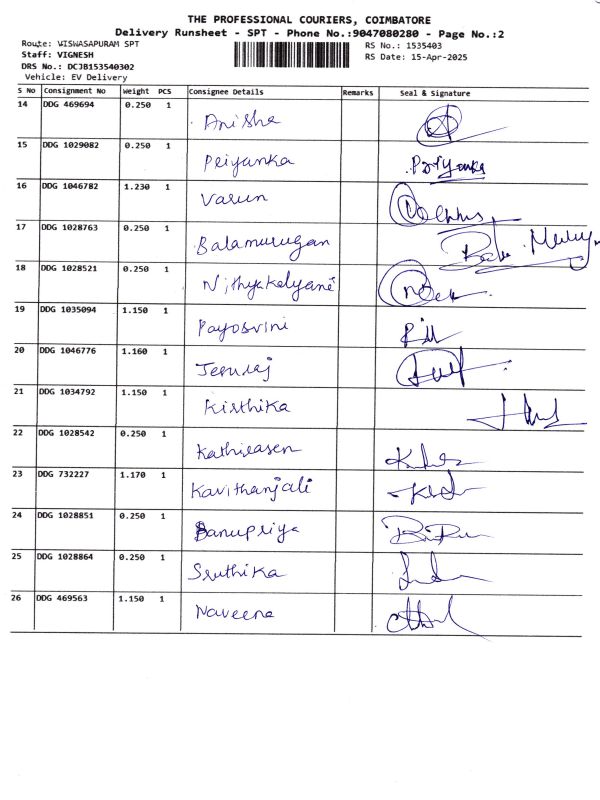 THE PROFESSIONAL COURIERS, COIMBATORE
Delivery Runsheet - SPT - Phone No.:9047080280 - Page No.:2
Route: VISWASAPURAM SPT
RS No.: 1535403
Staff: VIGNESH
RS Date: 15-Apr-2025
DRS No.: DCJB153540302
Vehicle: EV Delivery
S No Consignment No Weight PCS Consignee Details Remarks Seal & Signature
14 DDG 469694 0.250 1 Anisha
15 DDG 1029082 0.250 1 Priyanka Priyanka
16 DDG 1046782 1.230 1 Varun
17 DDG 1028763 0.250 1 Balamurugan
18 DDG 1028521 0.250 1 Nithyakalyani
19 DDG 1035094 1.150 1 Payosvini
20 DDG 1046776 1.160 1
21 DDG 1034792 1.150 1 Kisthika
22 DDG 1028542 0.250 1
23 DDG 732227 1.170 1 Kavithanjali
24 DDG 1028851 0.250 1 Banupriya
25 DDG 1028864 0.250 1 Sruthika
26 DDG 469563 1.150 1 Naveena